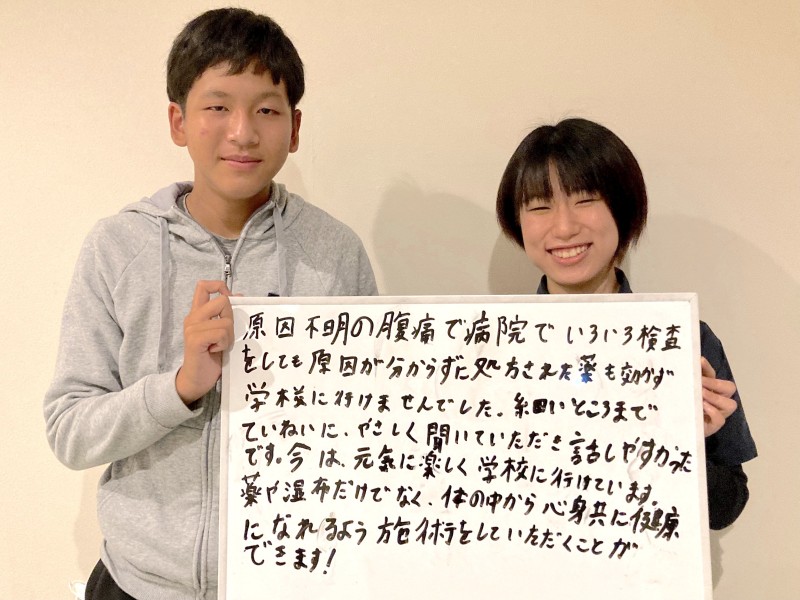 原因不明の腹痛で病院でいろいろ検査
をしても原因が分からずに処方された薬も効かず
学校に行けませんでした。細かいところまで
ていねいに、やさしく聞いていただき話しやすかった
です。今は、元気に楽しく学校に行けています。
薬や湿布だけでなく、体の中から心身共に健康
に、なれるよう施術をしていただくことが
できます!